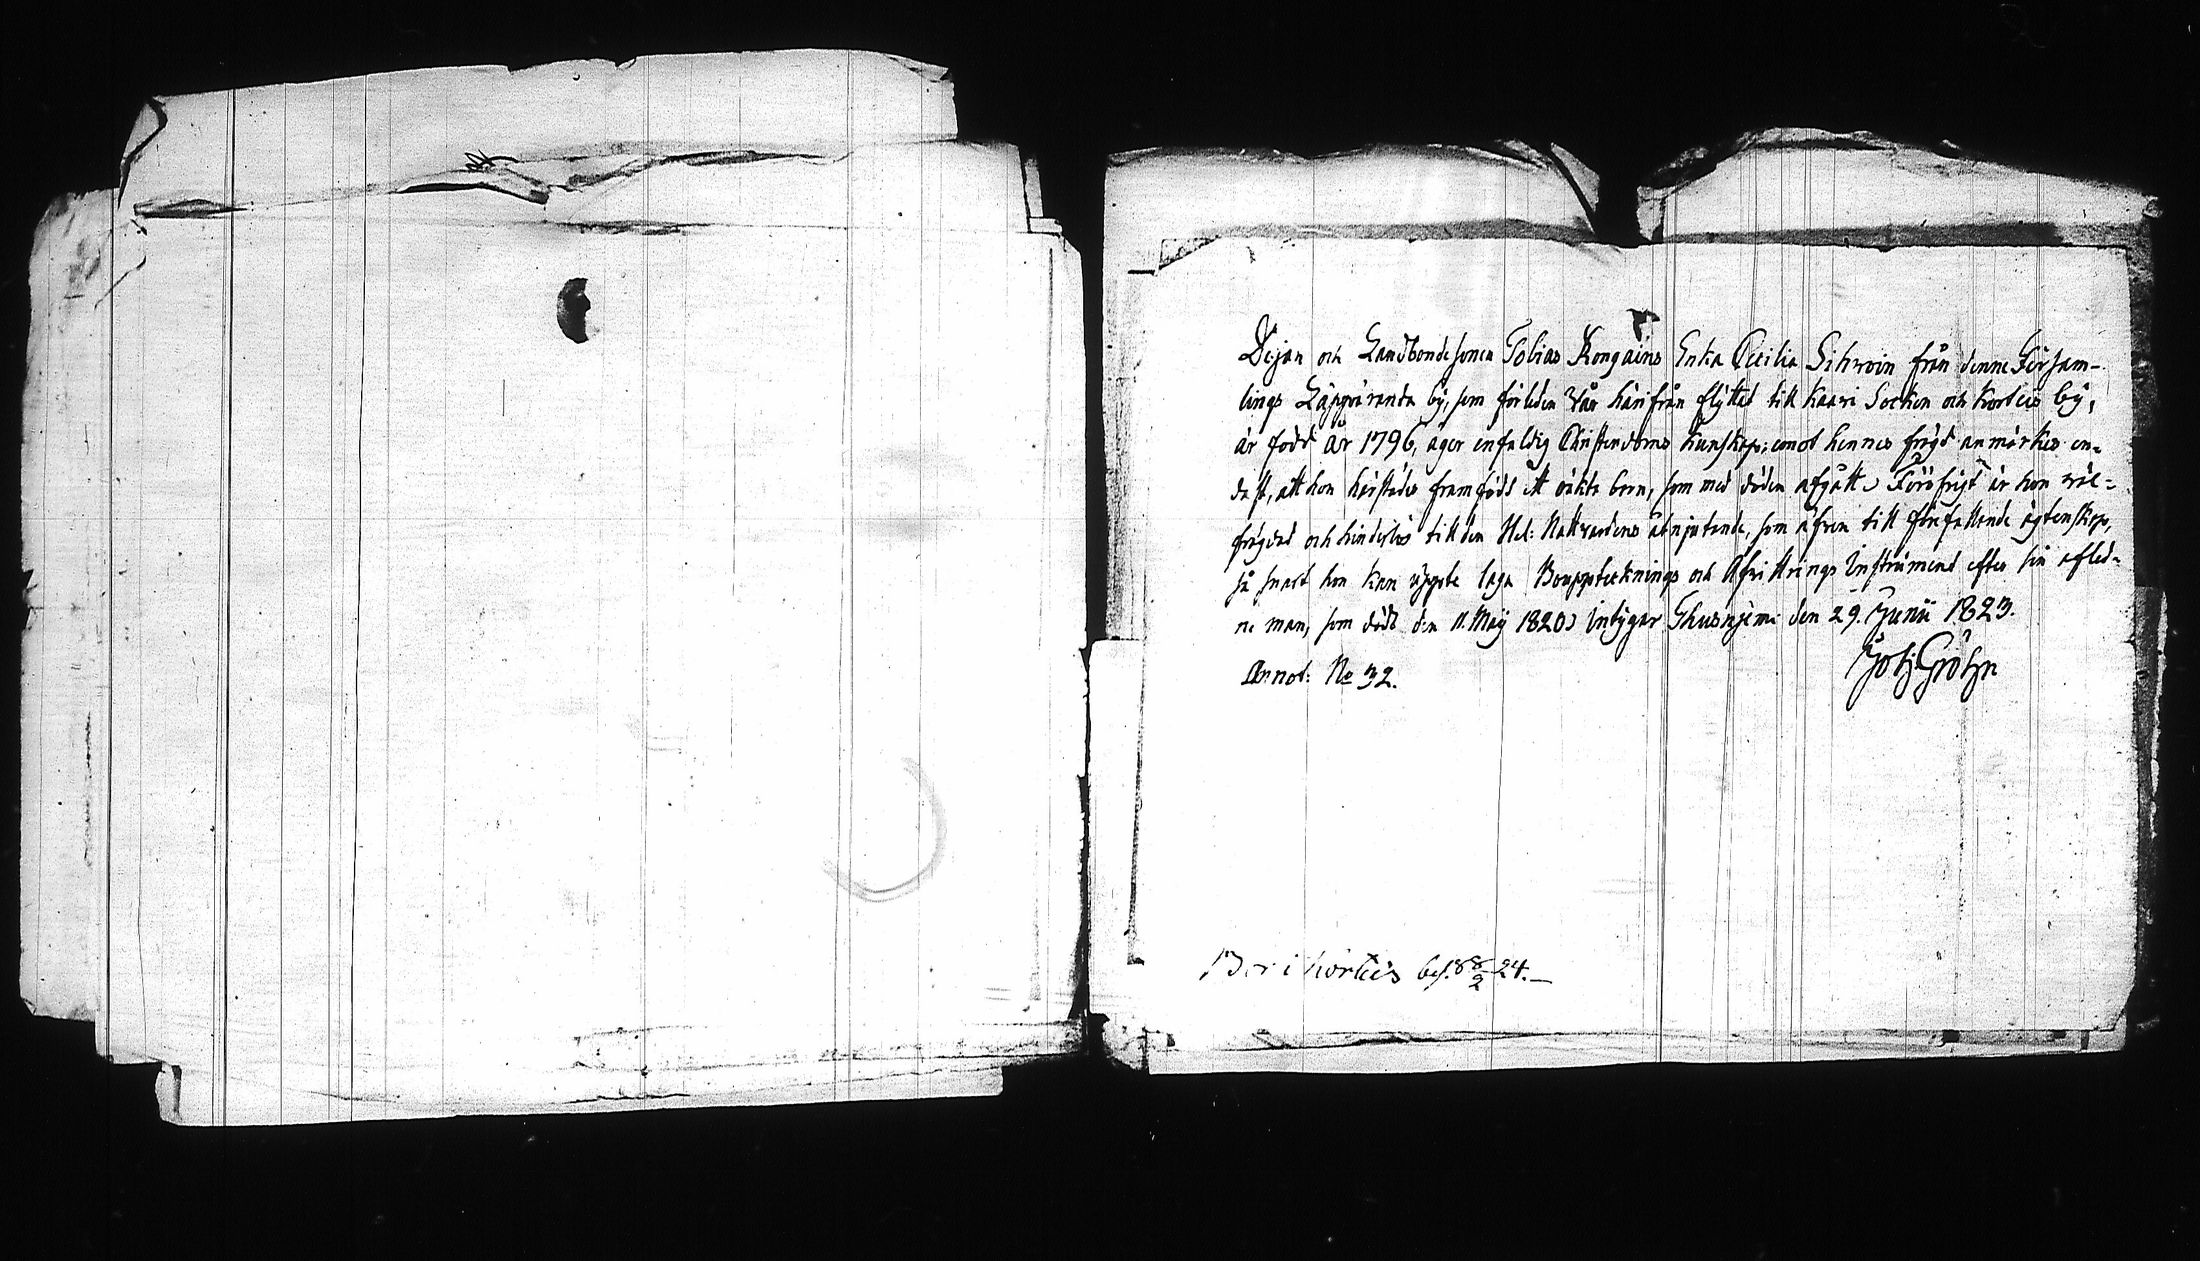 Pejan och Landbondesonen Tobias Kongains Enka Cecilia Sihvoin från denne Försam-
lings Lappväranda by, som förleden vår härifrån flyttat till Kaavi Socken och Korteis by,
är född år 1796, äger enfaldig Christendoms kunskap; emot hennes frägd anmärkes en-
dast, att hon härstädes framfödt ett oäkta barn, som med döden afgått. Föröfrigt är hon väl-
frägdad och hinderlös till den Hel: Nattvardens åtnjutande, som äfven till förefallande ägtenskap,
så snart hon kan uppte laga Bouppteknings och Afvittrings Instrument efter sin afled-
ne man, som dödt den 11. Maÿ 1820; intygar Idensalmi den 29. Junii 1823.
Joh: Gröhn
Annot: No 32.
Bor i Korteis bes. 8 8/2 24.